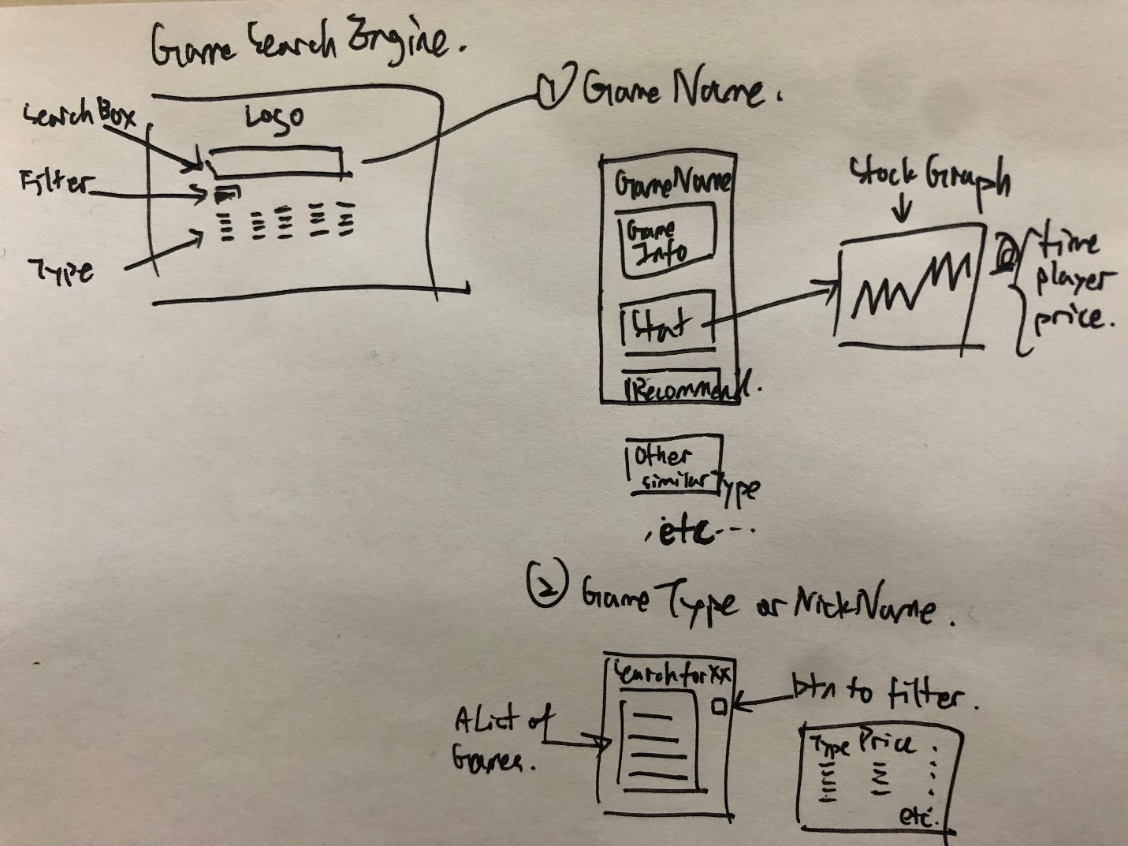 Game Search Engine.
Search Box
Logo
Filter
Type
① Game Name.
GameName
Game
Info
Stat
Recommend.
Other
similar Type
etc...
Stock Graph
time
player
price.
② Game Type or NickName.
Search for XX
btn to filter.
A List of
Games.
Type Price .
etc.